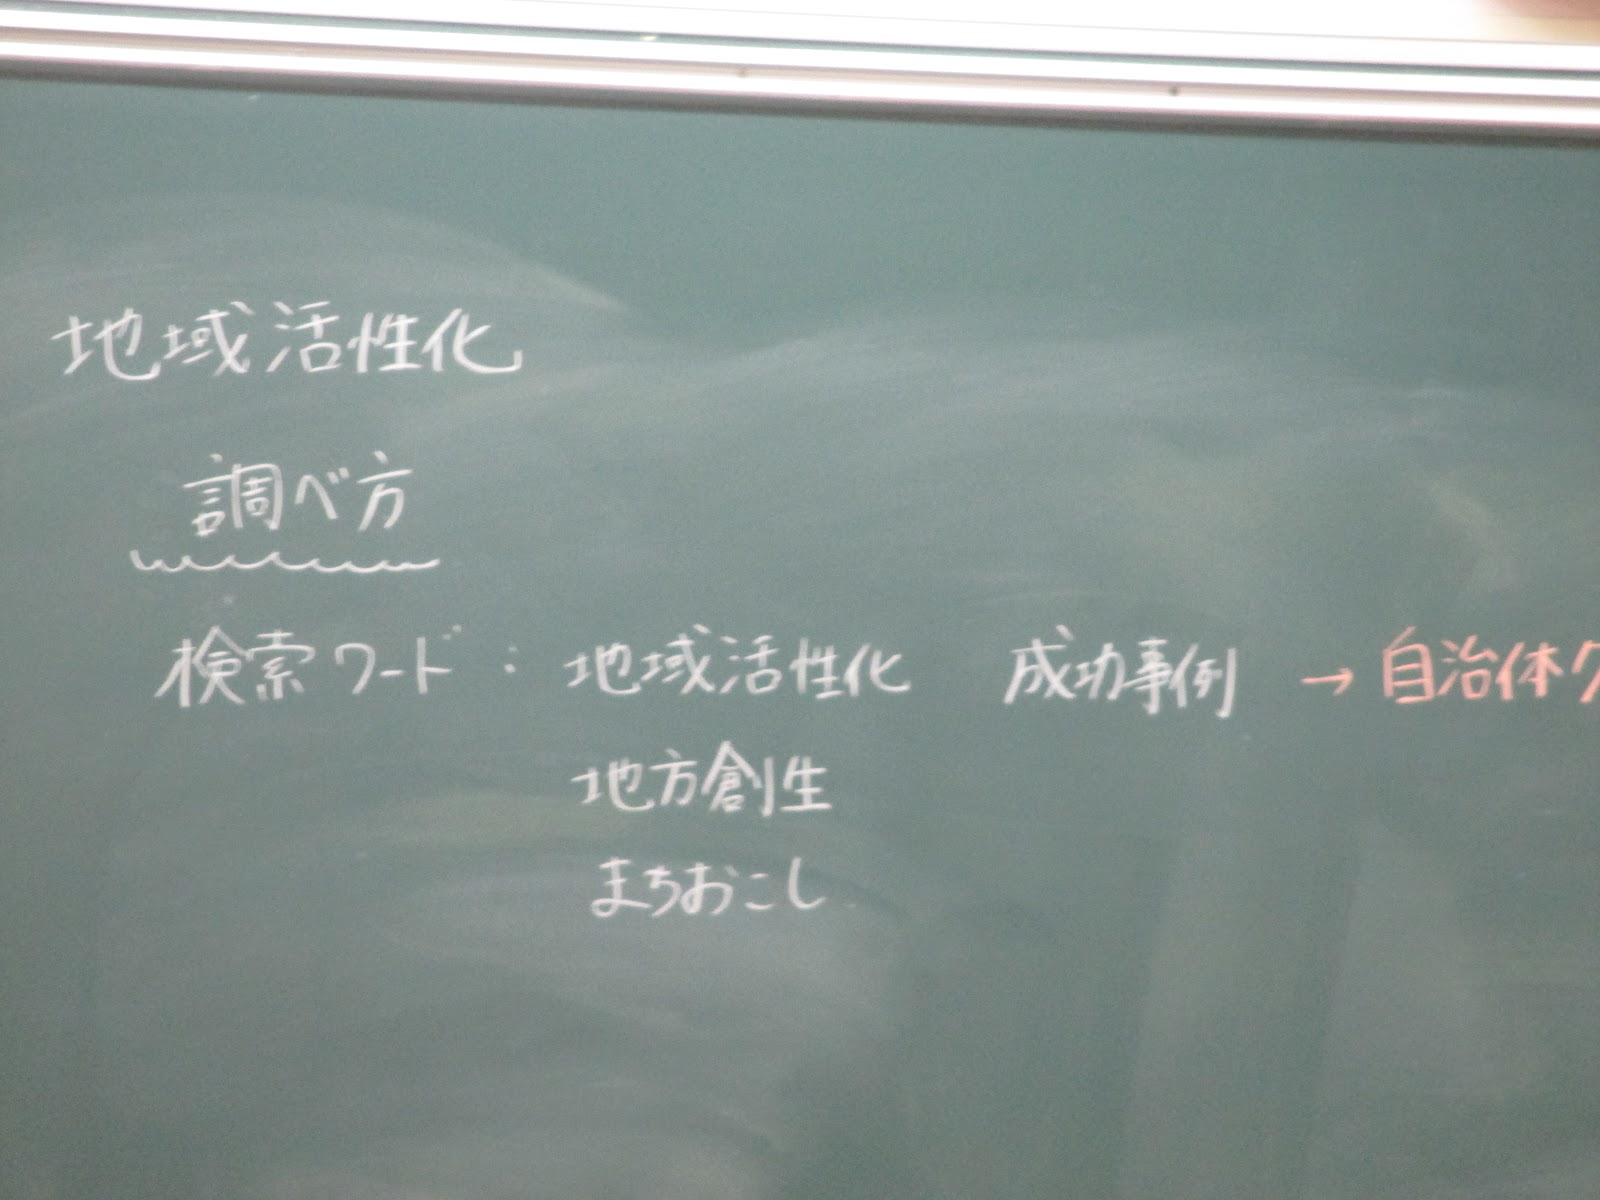 地域活性化
調べ方
検索ワード : 地域活性化 成功事例 → 自治体ク
地方創生
まちおこし